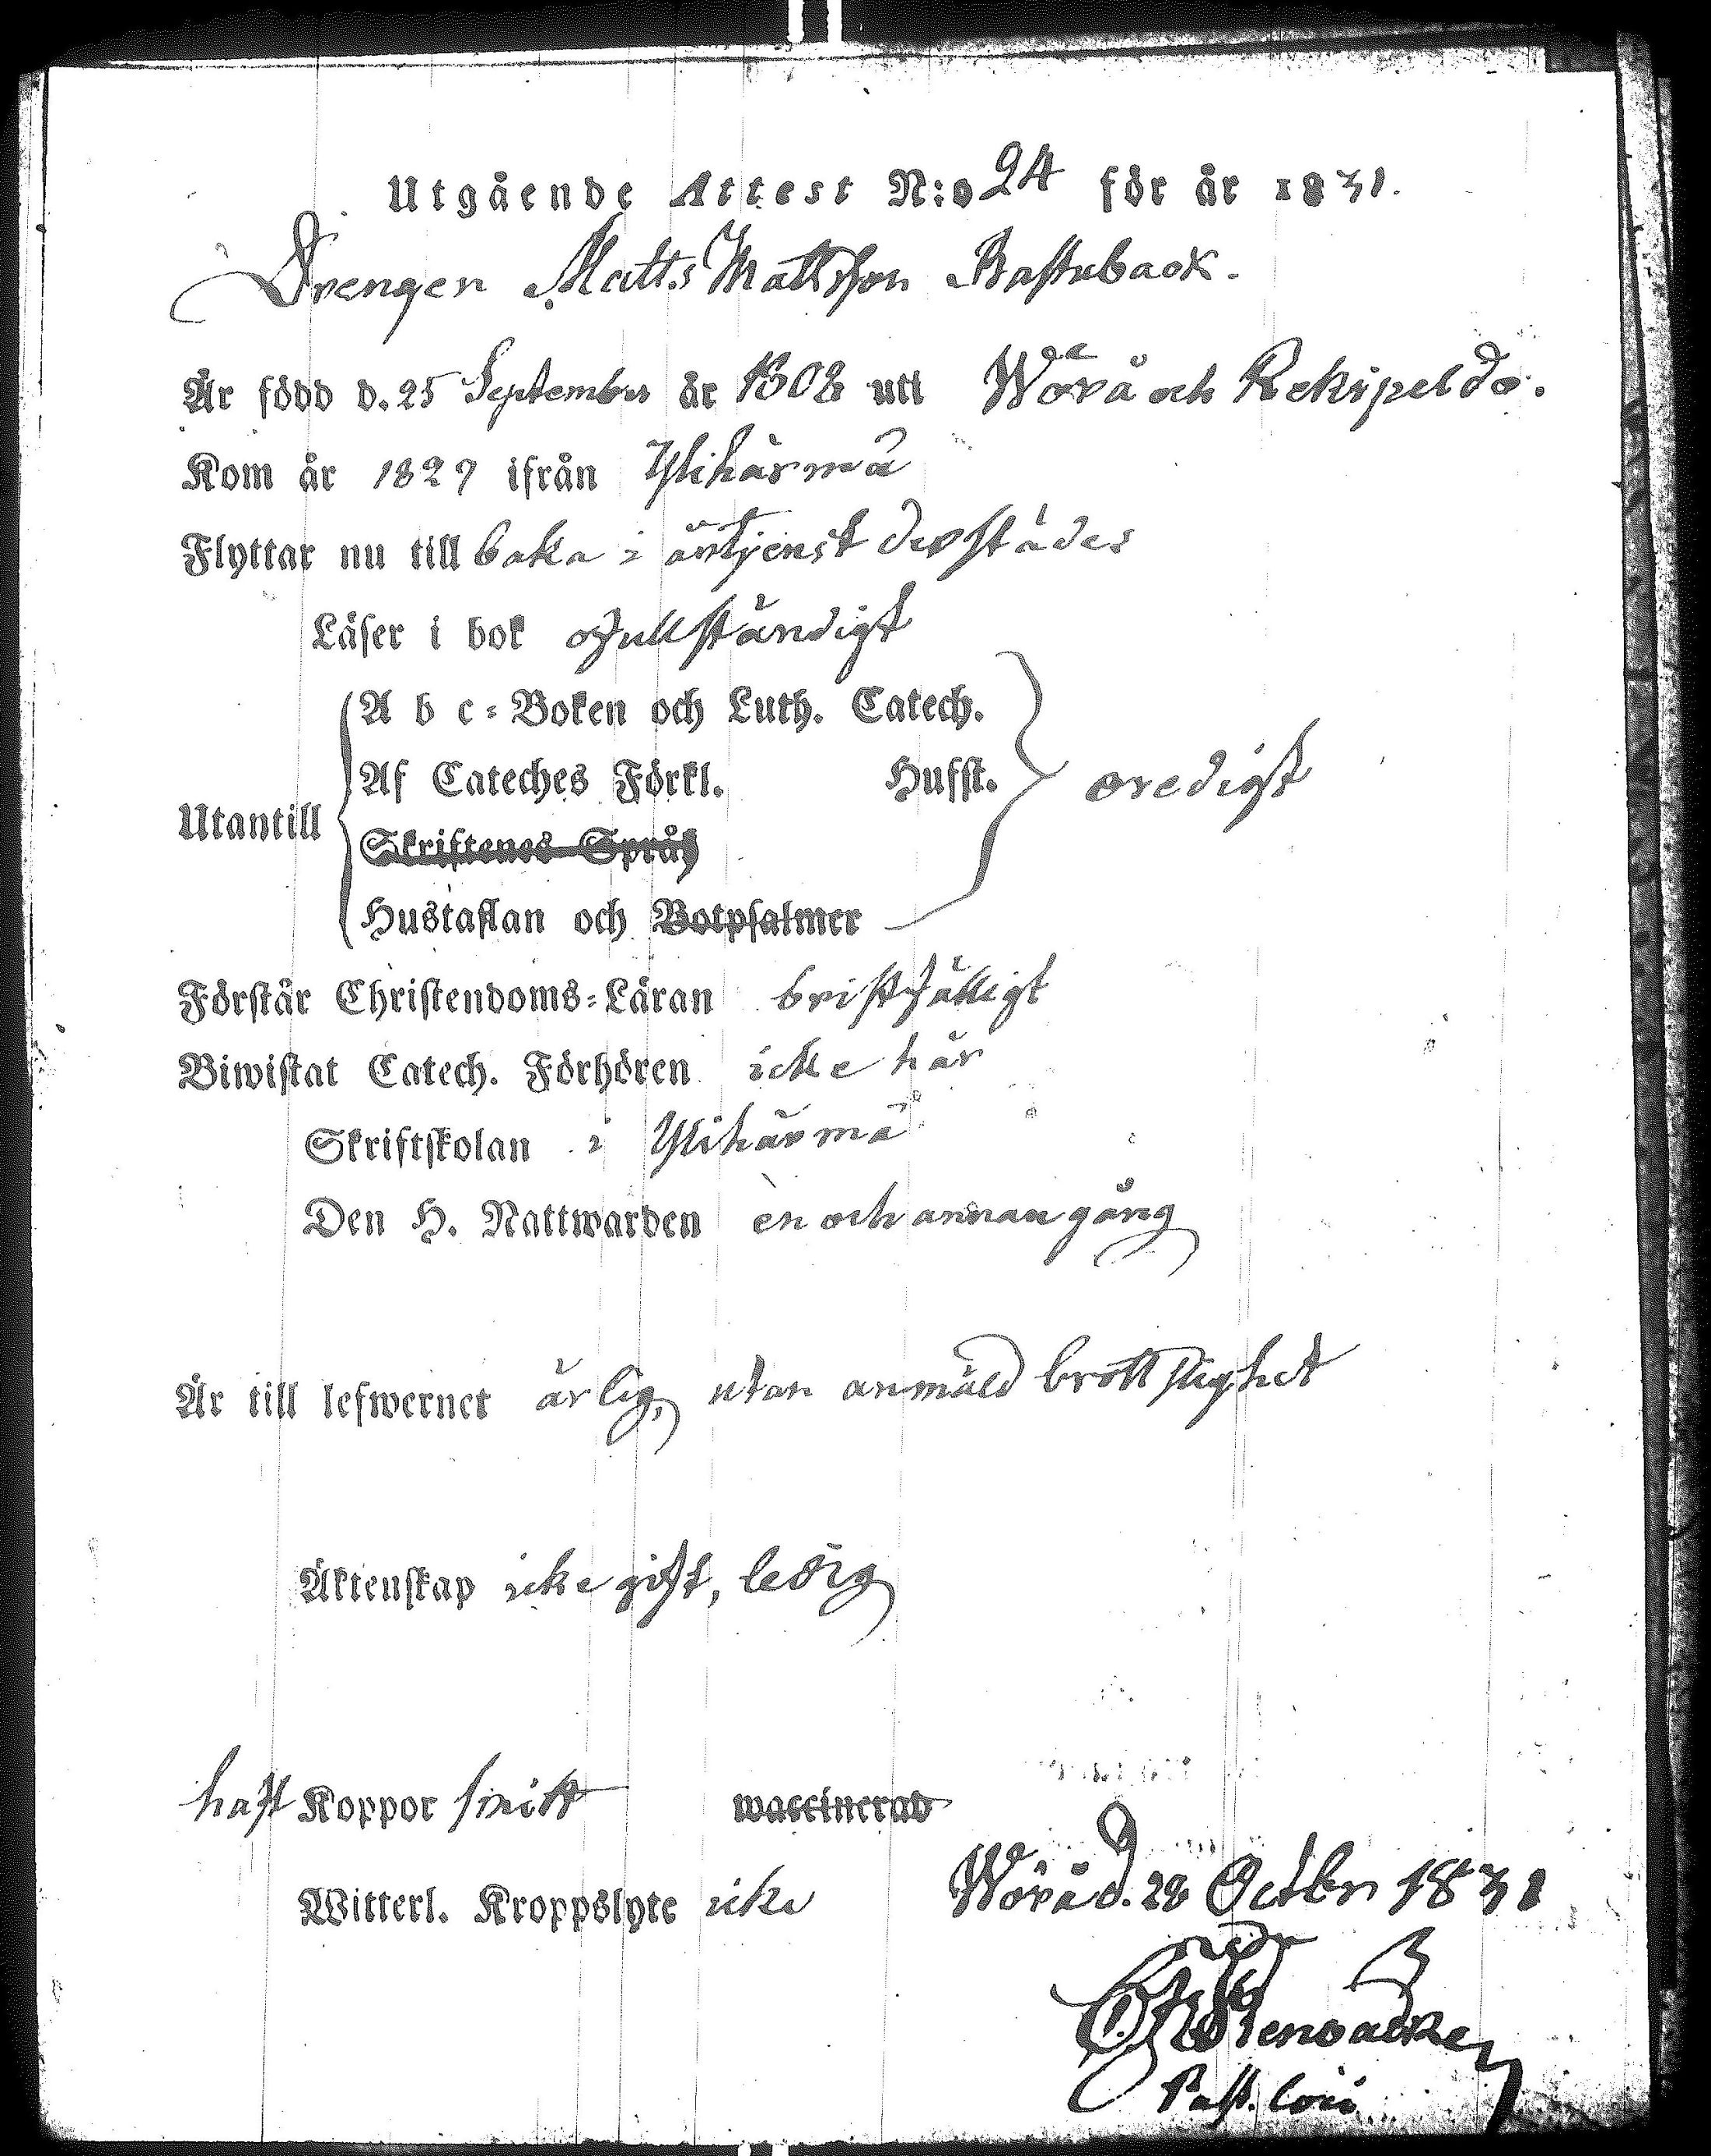 Utgående Attest N:o 24 för år 1831.
Drengen Matts Mattsson Bastuback.
Är född d. 25 September år 1808 uti Wörå och Rekipeldo.
Kom år 1829 ifrån Ylihärmä
Flyttar nu till baka i årstjenst derstädes
Läser i bok ofullständigt
A b c-Boken och Luth. Catech.
Af Cateches Förkl. Husst. oredigt
Utantill
Skriftenes Språk
Hustaflan och Botpsalmer
Förstår Christendoms-Läran bristfälligt
Biwistat Catech. Förhören icke här
Skriftskolan i Ylihärmä
Den H. Nattwarden en och annan gång
Är till lefwernet ärlig, utan anmäld brottslighet
Äktenskap icke gift, ledig
haft Koppor smitt waccinerad
Witterl. Kroppslyte icke
Wörå d. 28 Octbr 1831
Past. loci